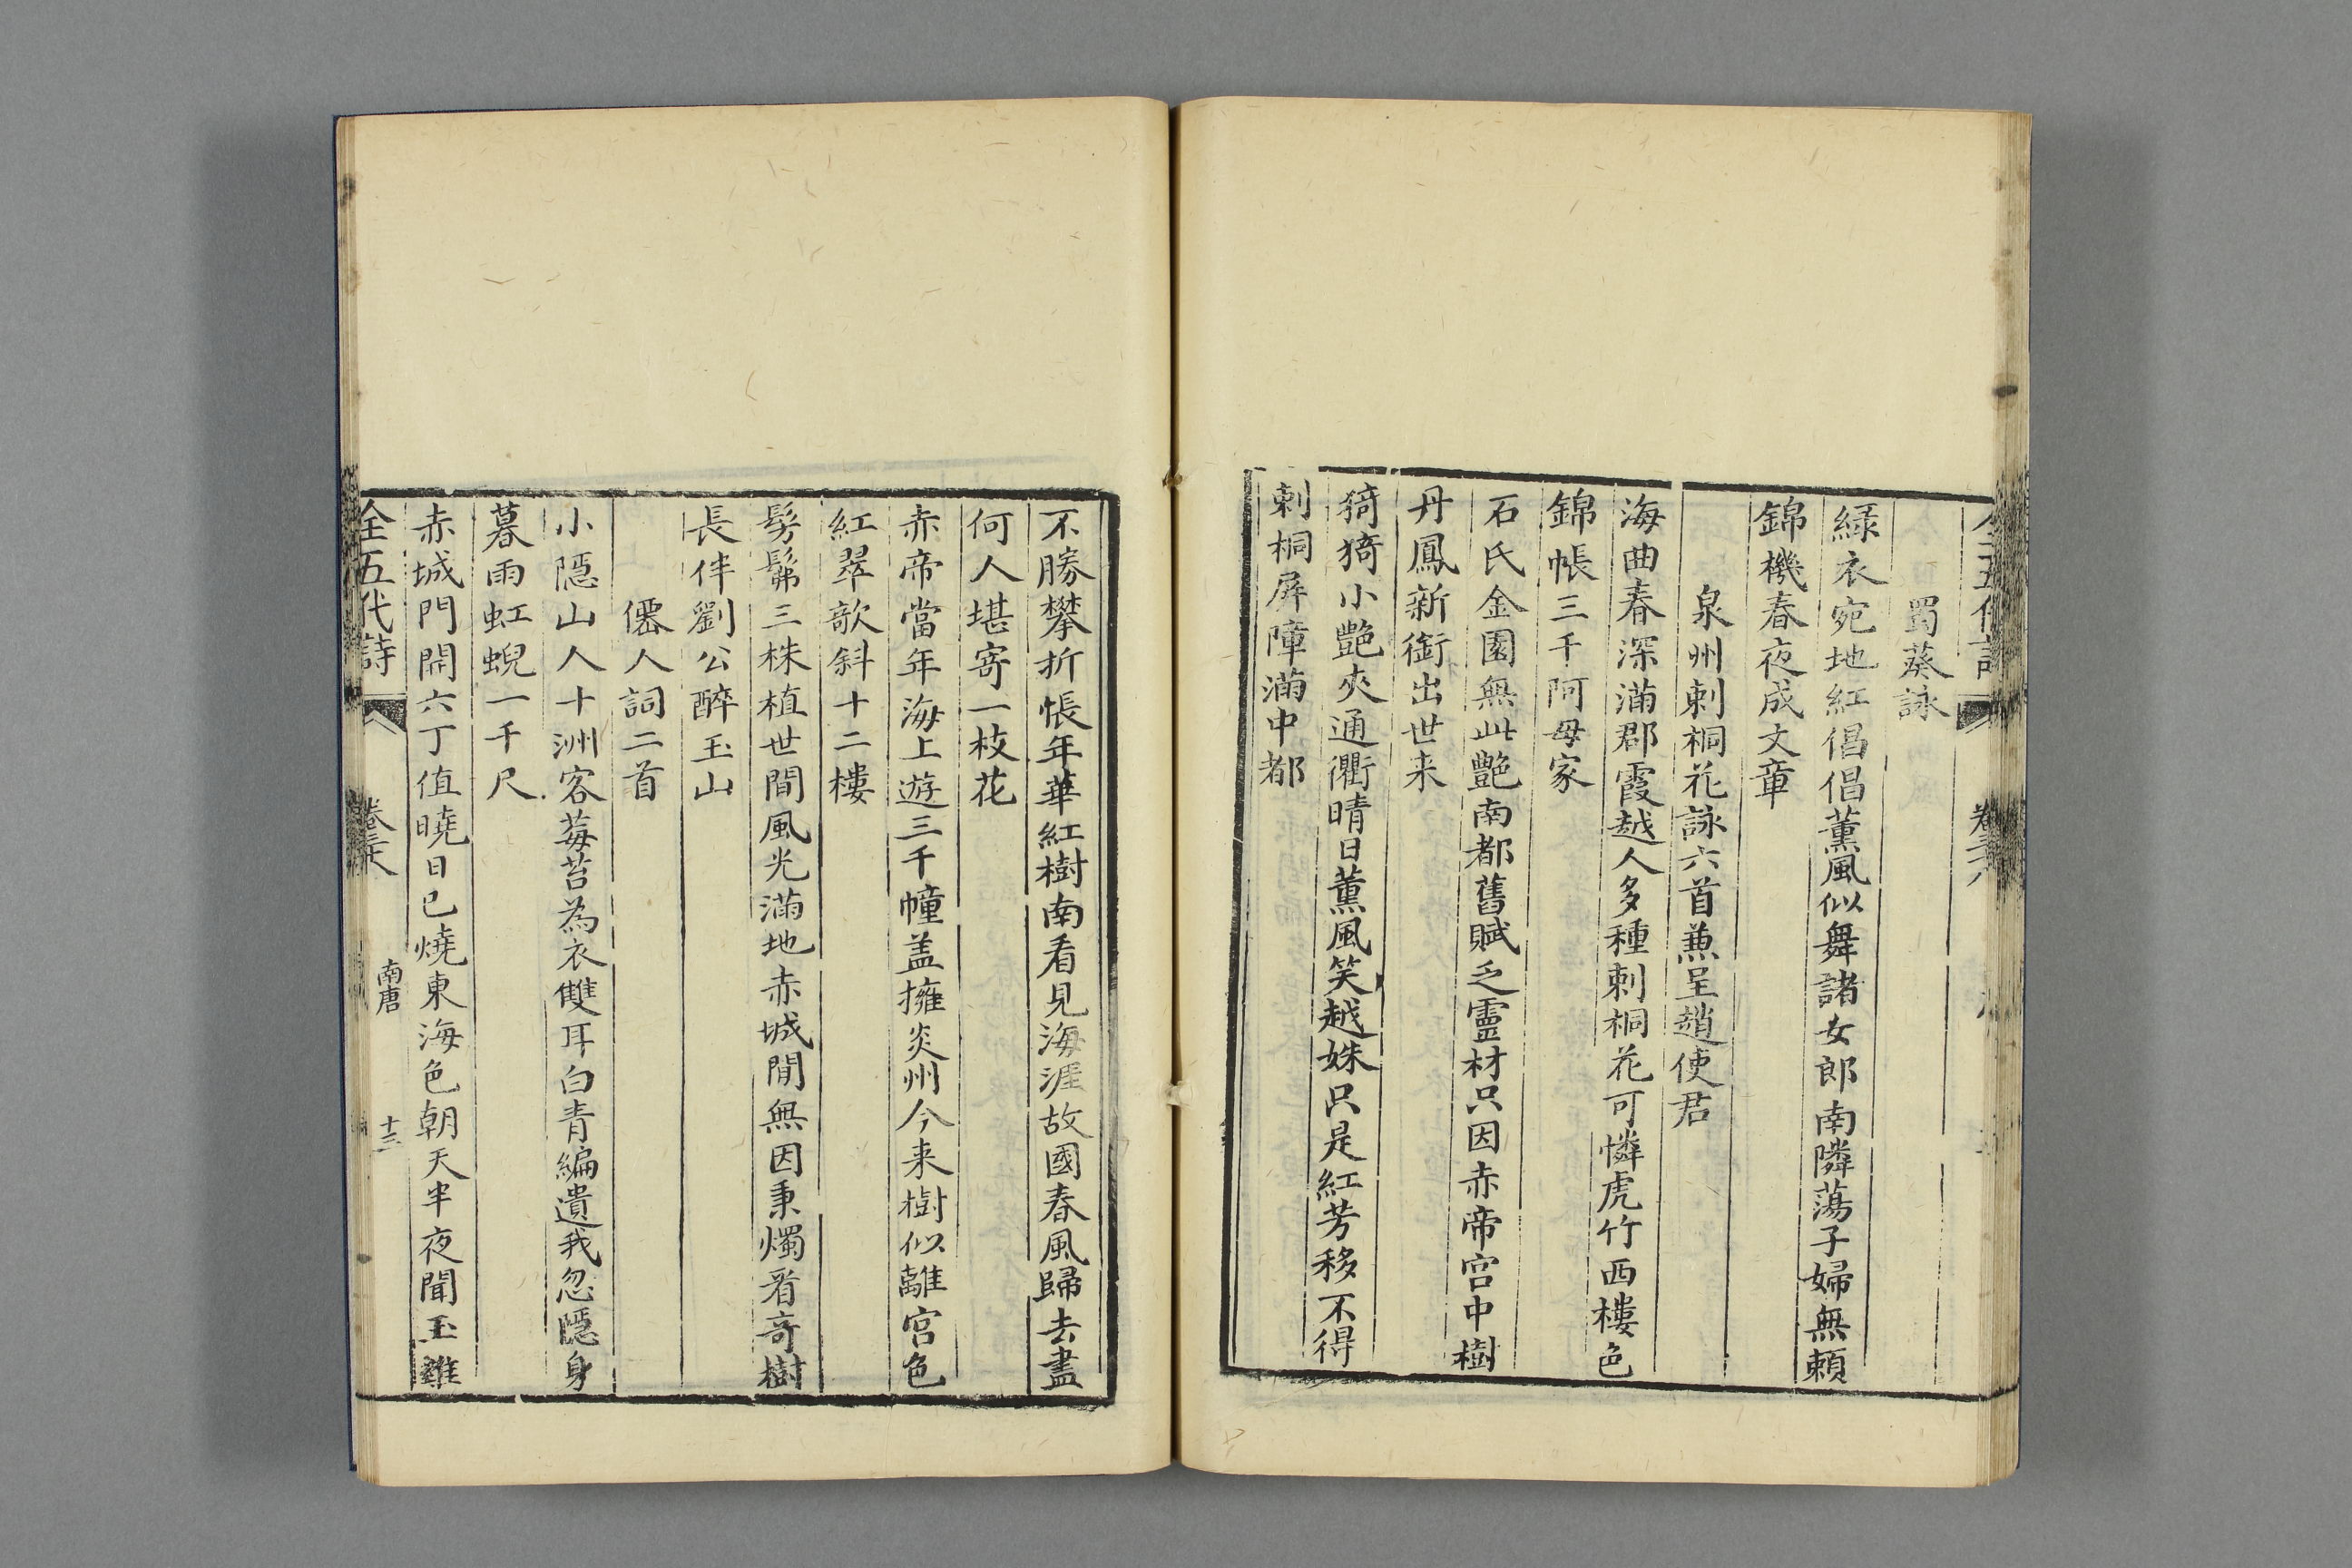 蜀葵詠
緑衣宛地紅倡倡薰風似舞諸女郎南隣蕩子婦無賴
錦機春夜成文章
泉州刺桐花詠六首兼呈趙使君
海曲春深滿郡霞越人多種刺桐花可憐虎竹西樓色
錦帳三千阿母家
石氏金園無此艷南都舊賦乏靈材只因赤帝宮中樹
丹鳳新銜出世来
猗猗小艷夾通衢晴日薰風笑越姝只是紅芳移不得
刺桐屏障滿中都
不勝攀折悵年華紅樹南看見海涯故國春風歸去盡
何人堪寄一枝花
赤帝當年海上遊三千幢盖擁炎州今来樹似離宮色
紅翠欹斜十二樓
髣髴三株植世間風光滿地赤城閒無因秉燭看奇樹
長伴劉公醉玉山
僊人詞二首
小隱山人十洲客莓苔為衣雙耳白青編遺我忽隱身
暮雨虹蜺一千尺
赤城門開六丁值曉日已燒東海色朝天半夜聞玉雞
全五代詩
南唐
十三